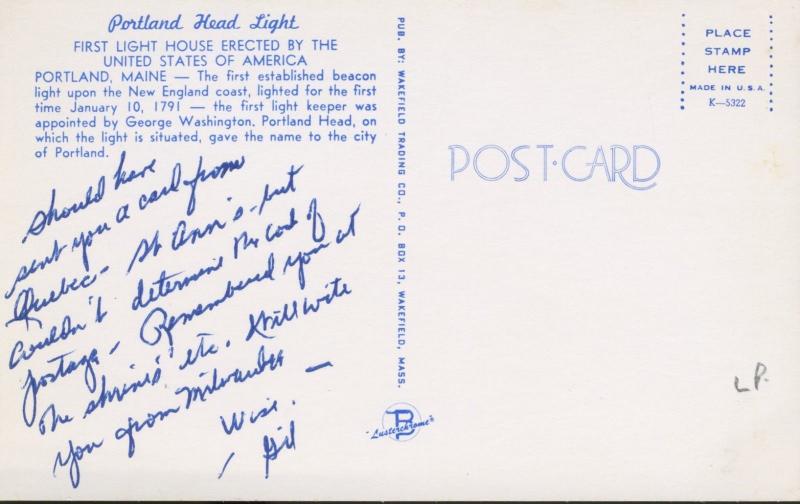 Portland Head Light
FIRST LIGHT HOUSE ERECTED BY THE
UNITED STATES OF AMERICA
PORTLAND, MAINE — The first established beacon
light upon the New England coast, lighted for the first
time January 10, 1791 — the first light keeper was
appointed by George Washington. Portland Head, on
which the light is situated, gave the name to the city
of Portland.
Should have
sent you a card from
Quebec - St Ann's - but
couldn't determine the cost of
postage - Remembered you at
the shrines etc. Will write
you from Milwaukee —
Wisc.
- Gil
PUB. BY: WAKEFIELD TRADING CO., P. O. BOX 13, WAKEFIELD, MASS.
"Lusterchrome"
POST-CARD
PLACE
STAMP
HERE
MADE IN U.S.A.
K-5322
LP.